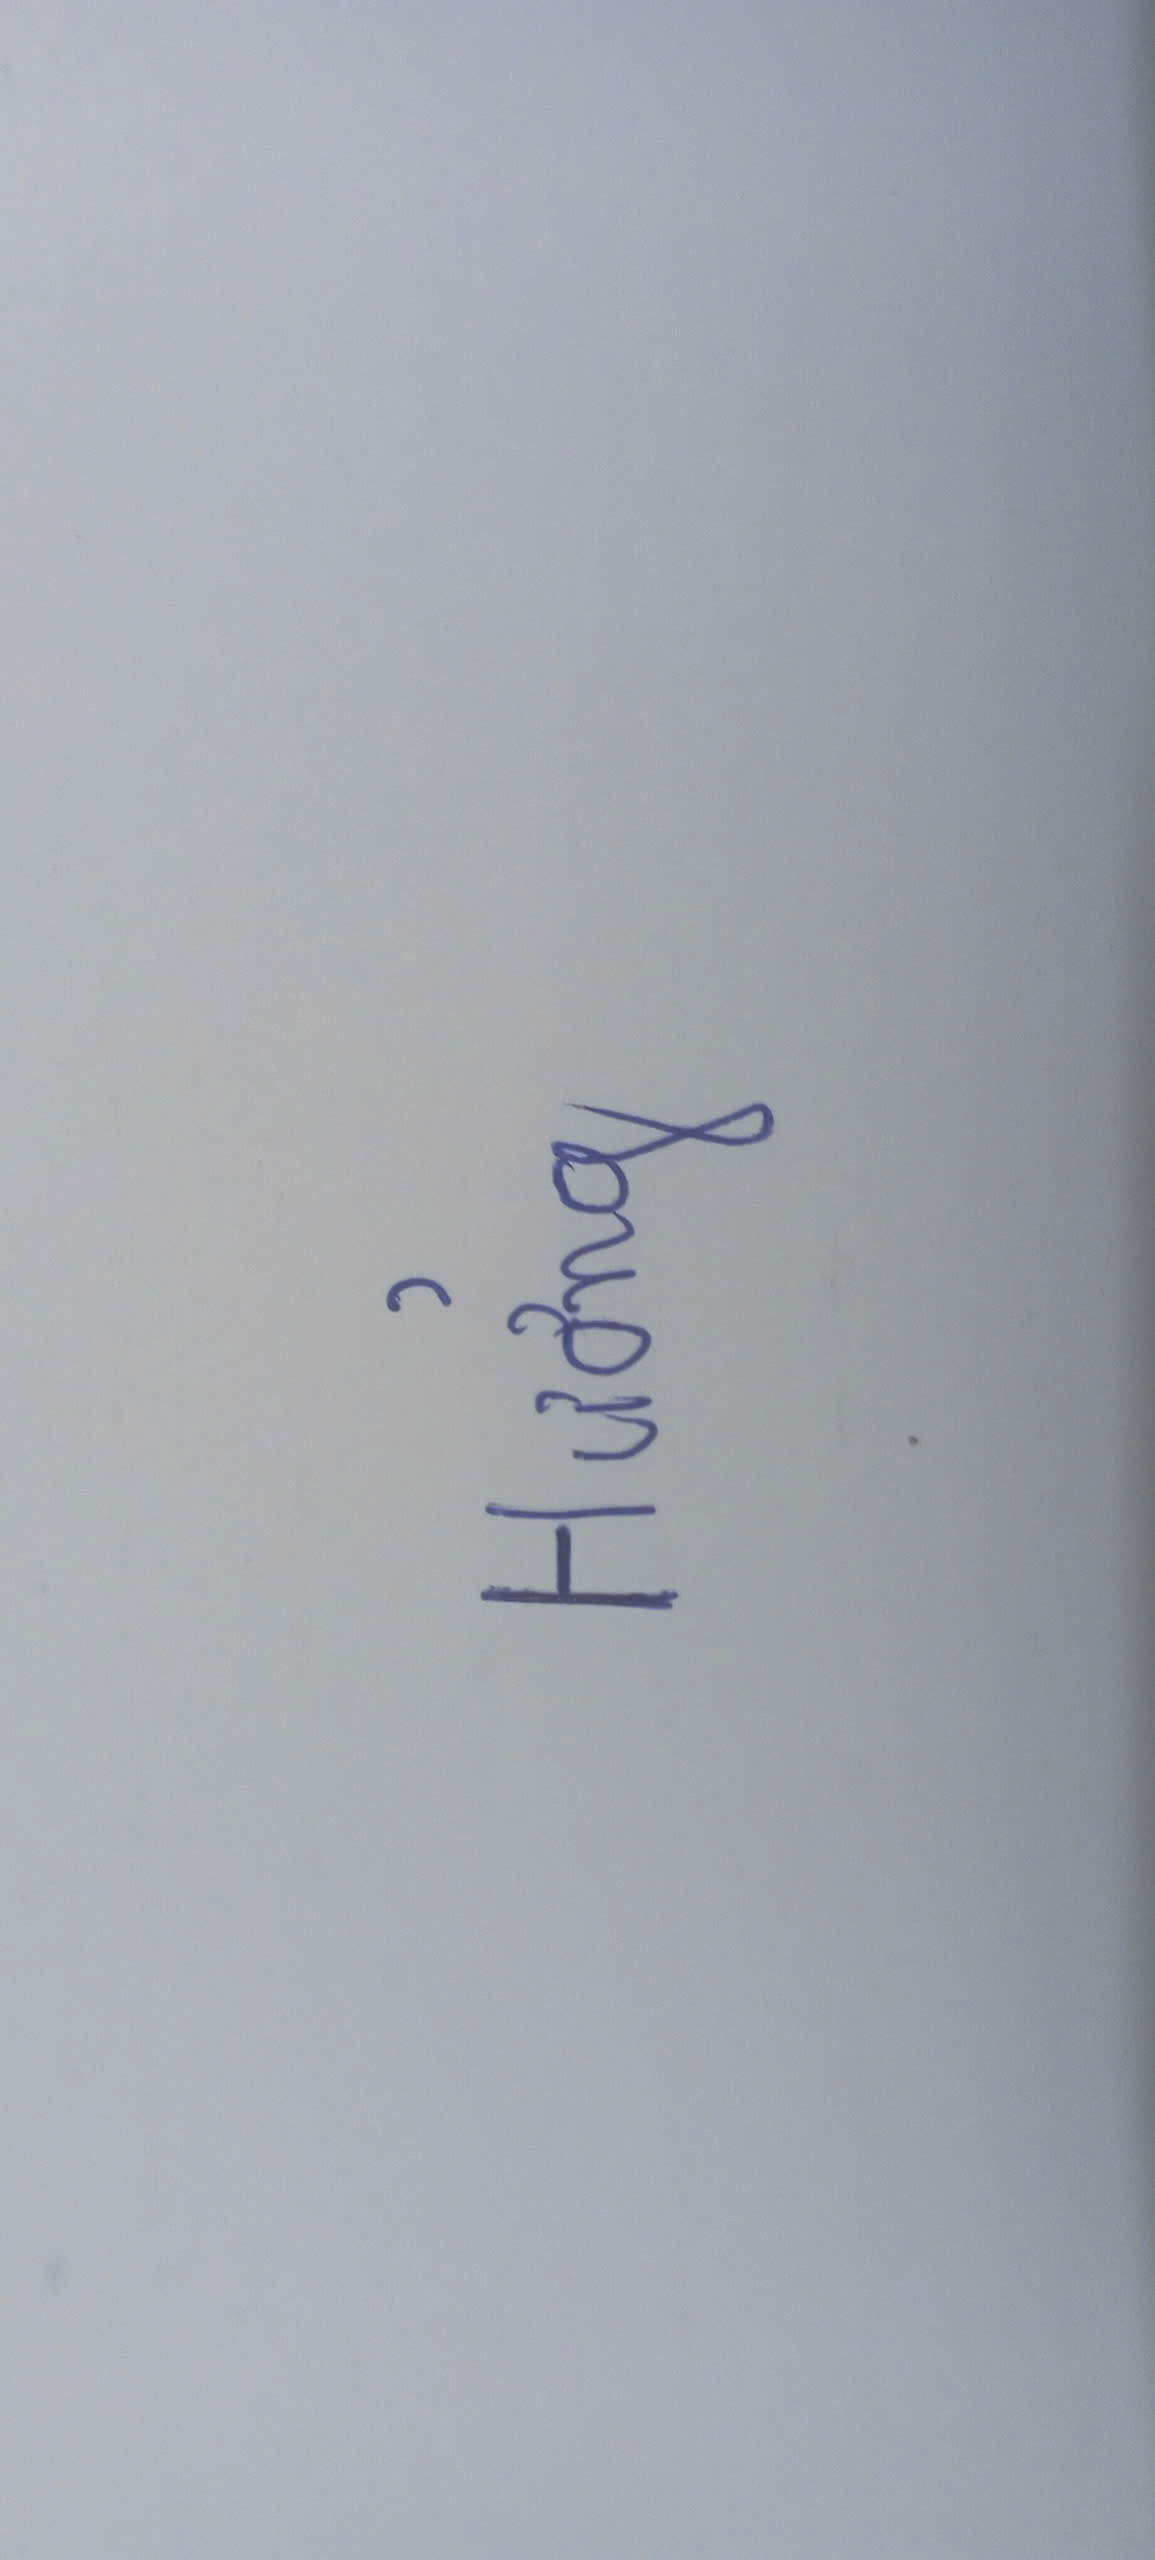 Hưởng